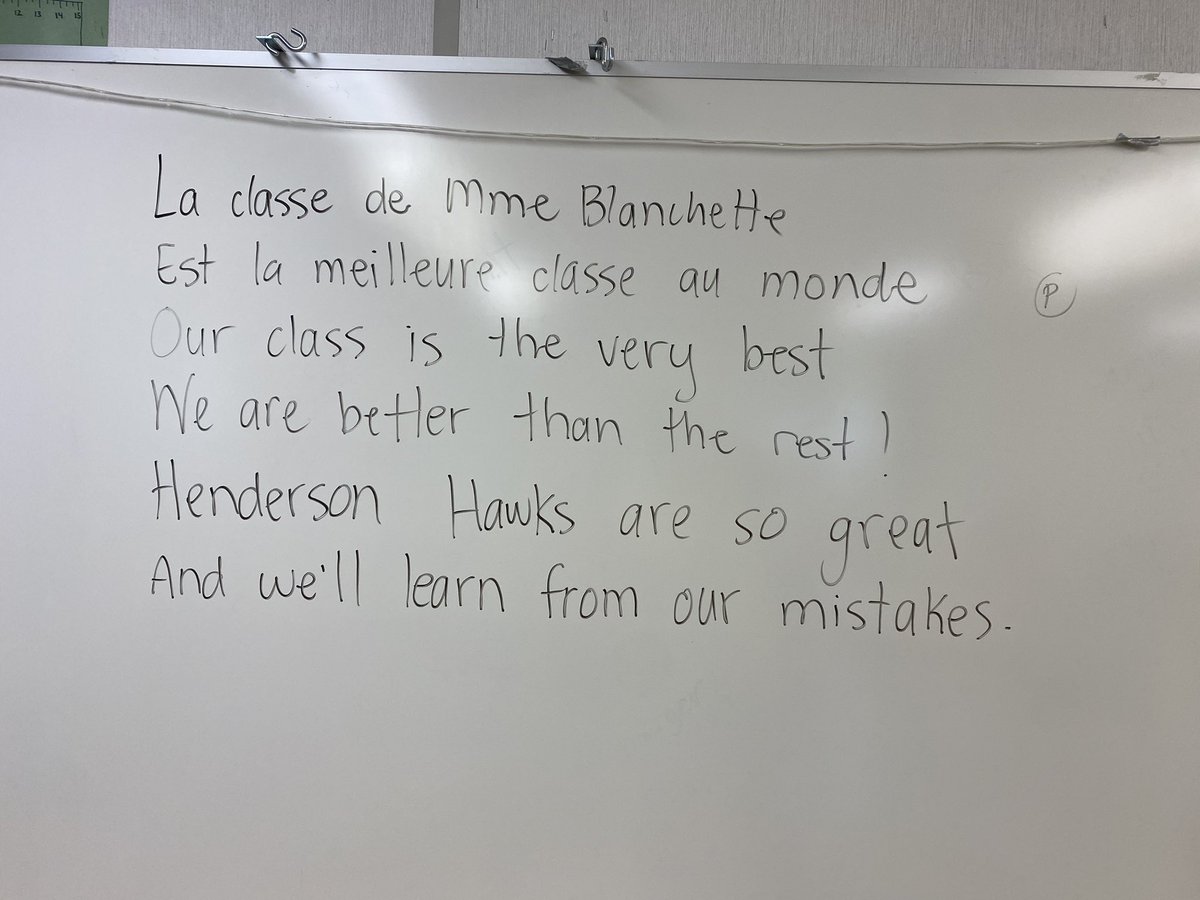 12 13 14 15
La classe de Mme Blanchette
Est la meilleure classe au monde
P
Our class is the very best
We are better than the rest!
Henderson Hawks are so great
And we'll learn from our mistakes.